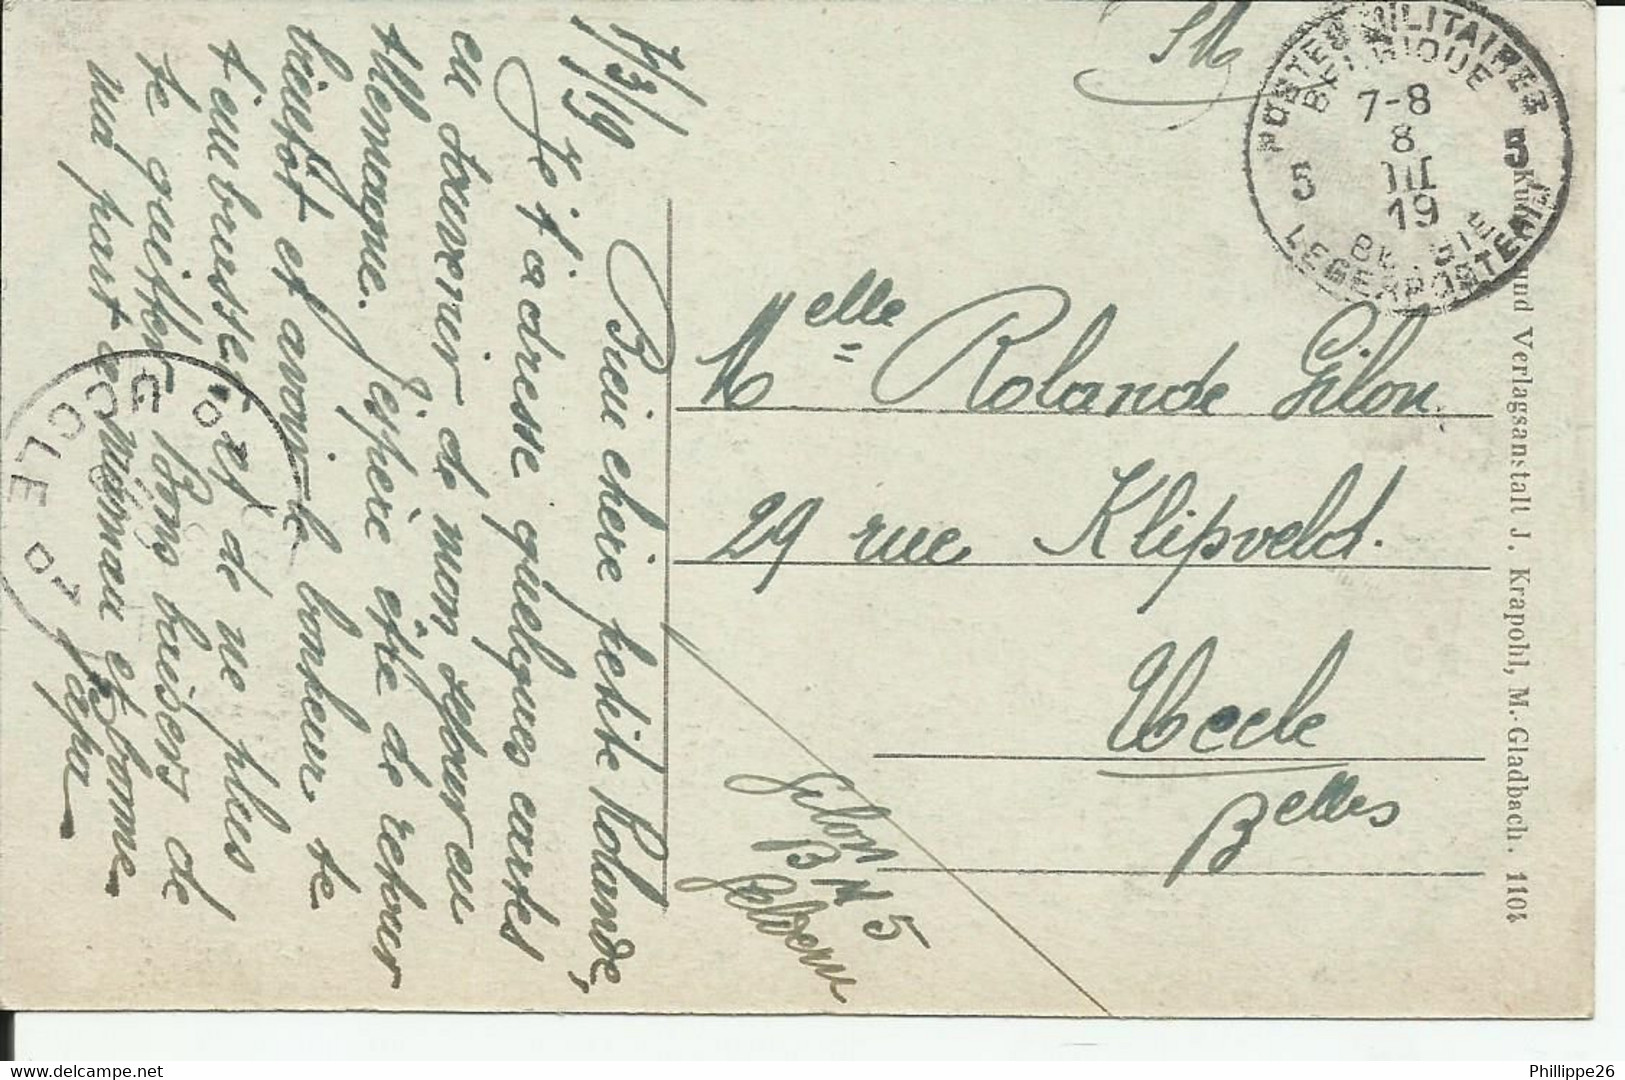 7/3/19
Bien chère petite Rolande,
Je t'adresse quelques cartes
en souvenir de mon séjour en
Allemagne. J'espère être de retour
bientôt et avoir le bonheur te
t'embrasser, et de ne plus
te quitter. Bons baisers de
ma part à maman et bonne
papa
SM
POSTES MILITAIRES
BELGIQUE
7-8
8
III
19
5 5
BELGIE
LEGERPOSTERIJ
Melle Rolande Gilon
29 rue Klipveld.
Uccle
Belles
Gilon
B M 5
Geldern
UCCLE
und Verlagsanstalt J. Krapohl, M.-Gladbach. 1104
Philippe26